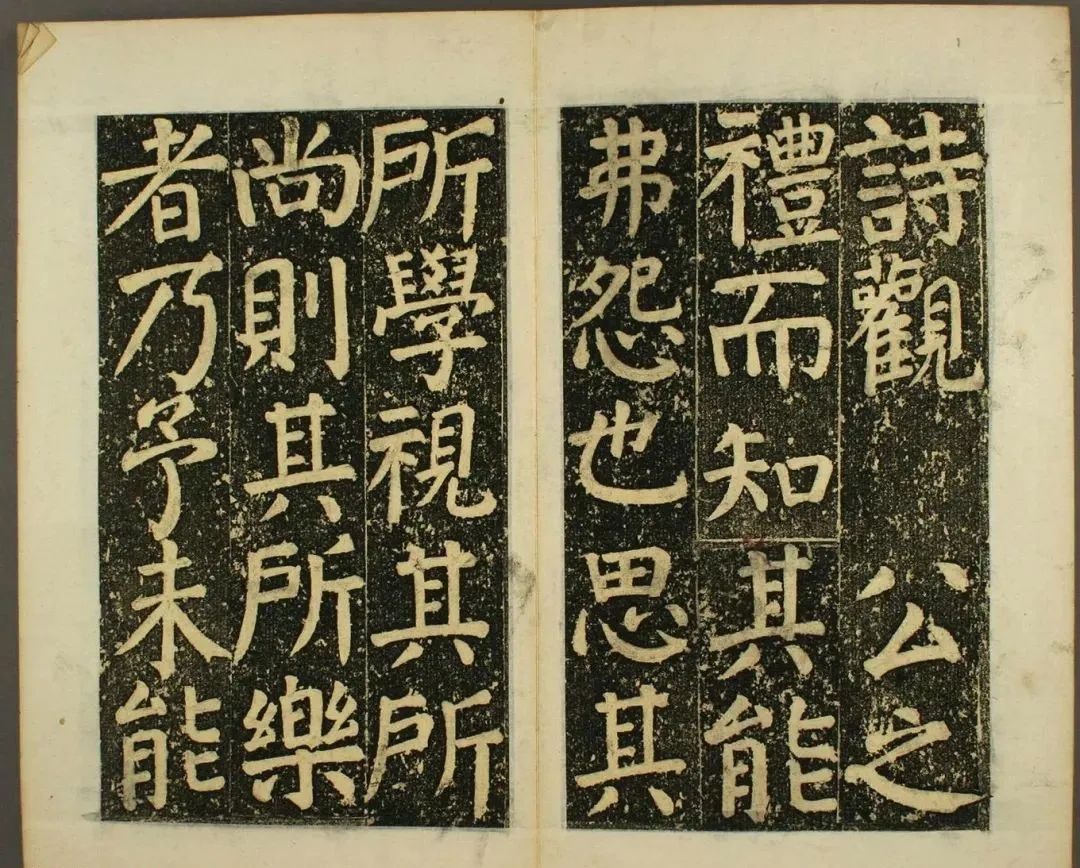 詩觀公之
禮而知其能
弗怨也思其
所學視其所
尚則其所樂
者乃予未能